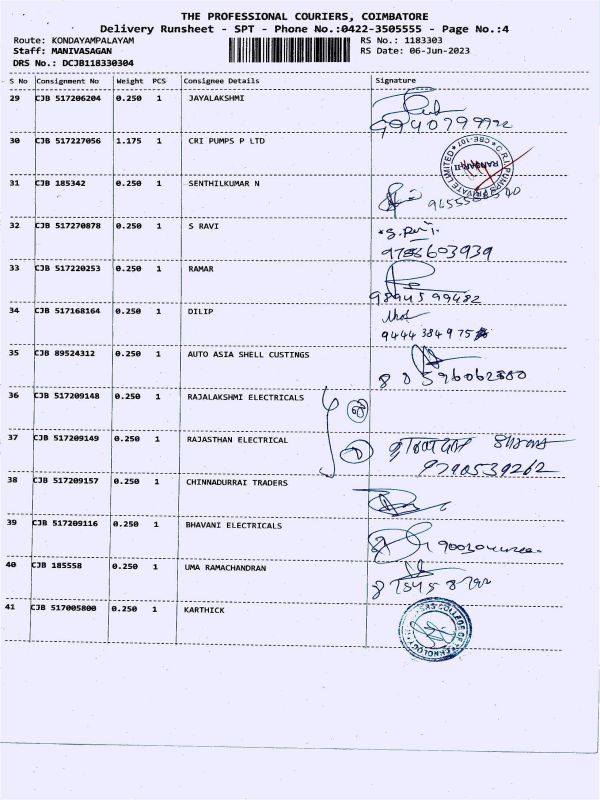 THE PROFESSIONAL COURIERS, COIMBATORE
Delivery Runsheet - SPT - Phone No.:0422-3505555 - Page No.:4
Route: KONDAYAMPALAYAM RS No.: 1183303
Staff: MANIVASAGAN RS Date: 06-Jun-2023
DRS No.: DCJB118330304
S No Consignment No Weight PCS Consignee Details Signature
29 CJB 517206204 0.250 1 JAYALAKSHMI
9940799992
30 CJB 517227056 1.175 1 CRI PUMPS P LTD
C.R.I. PUMPS PRIVATE LIMITED CBE-107
31 CJB 185342 0.250 1 SENTHILKUMAR N
32 CJB 517270878 0.250 1 S RAVI
S. Ravi
9786603939
33 CJB 517220253 0.250 1 RAMAR
9894599482
34 CJB 517168164 0.250 1 DILIP
9444384975
35 CJB 89524312 0.250 1 AUTO ASIA SHELL CUSTINGS
36 CJB 517209148 0.250 1 RAJALAKSHMI ELECTRICALS
37 CJB 517209149 0.250 1 RAJASTHAN ELECTRICAL
9790539262
38 CJB 517209157 0.250 1 CHINNADURRAI TRADERS
39 CJB 517209116 0.250 1 BHAVANI ELECTRICALS
40 CJB 185558 0.250 1 UMA RAMACHANDRAN
41 CJB 517005800 0.250 1 KARTHICK
COLLEGE OF TECHNOLOGY